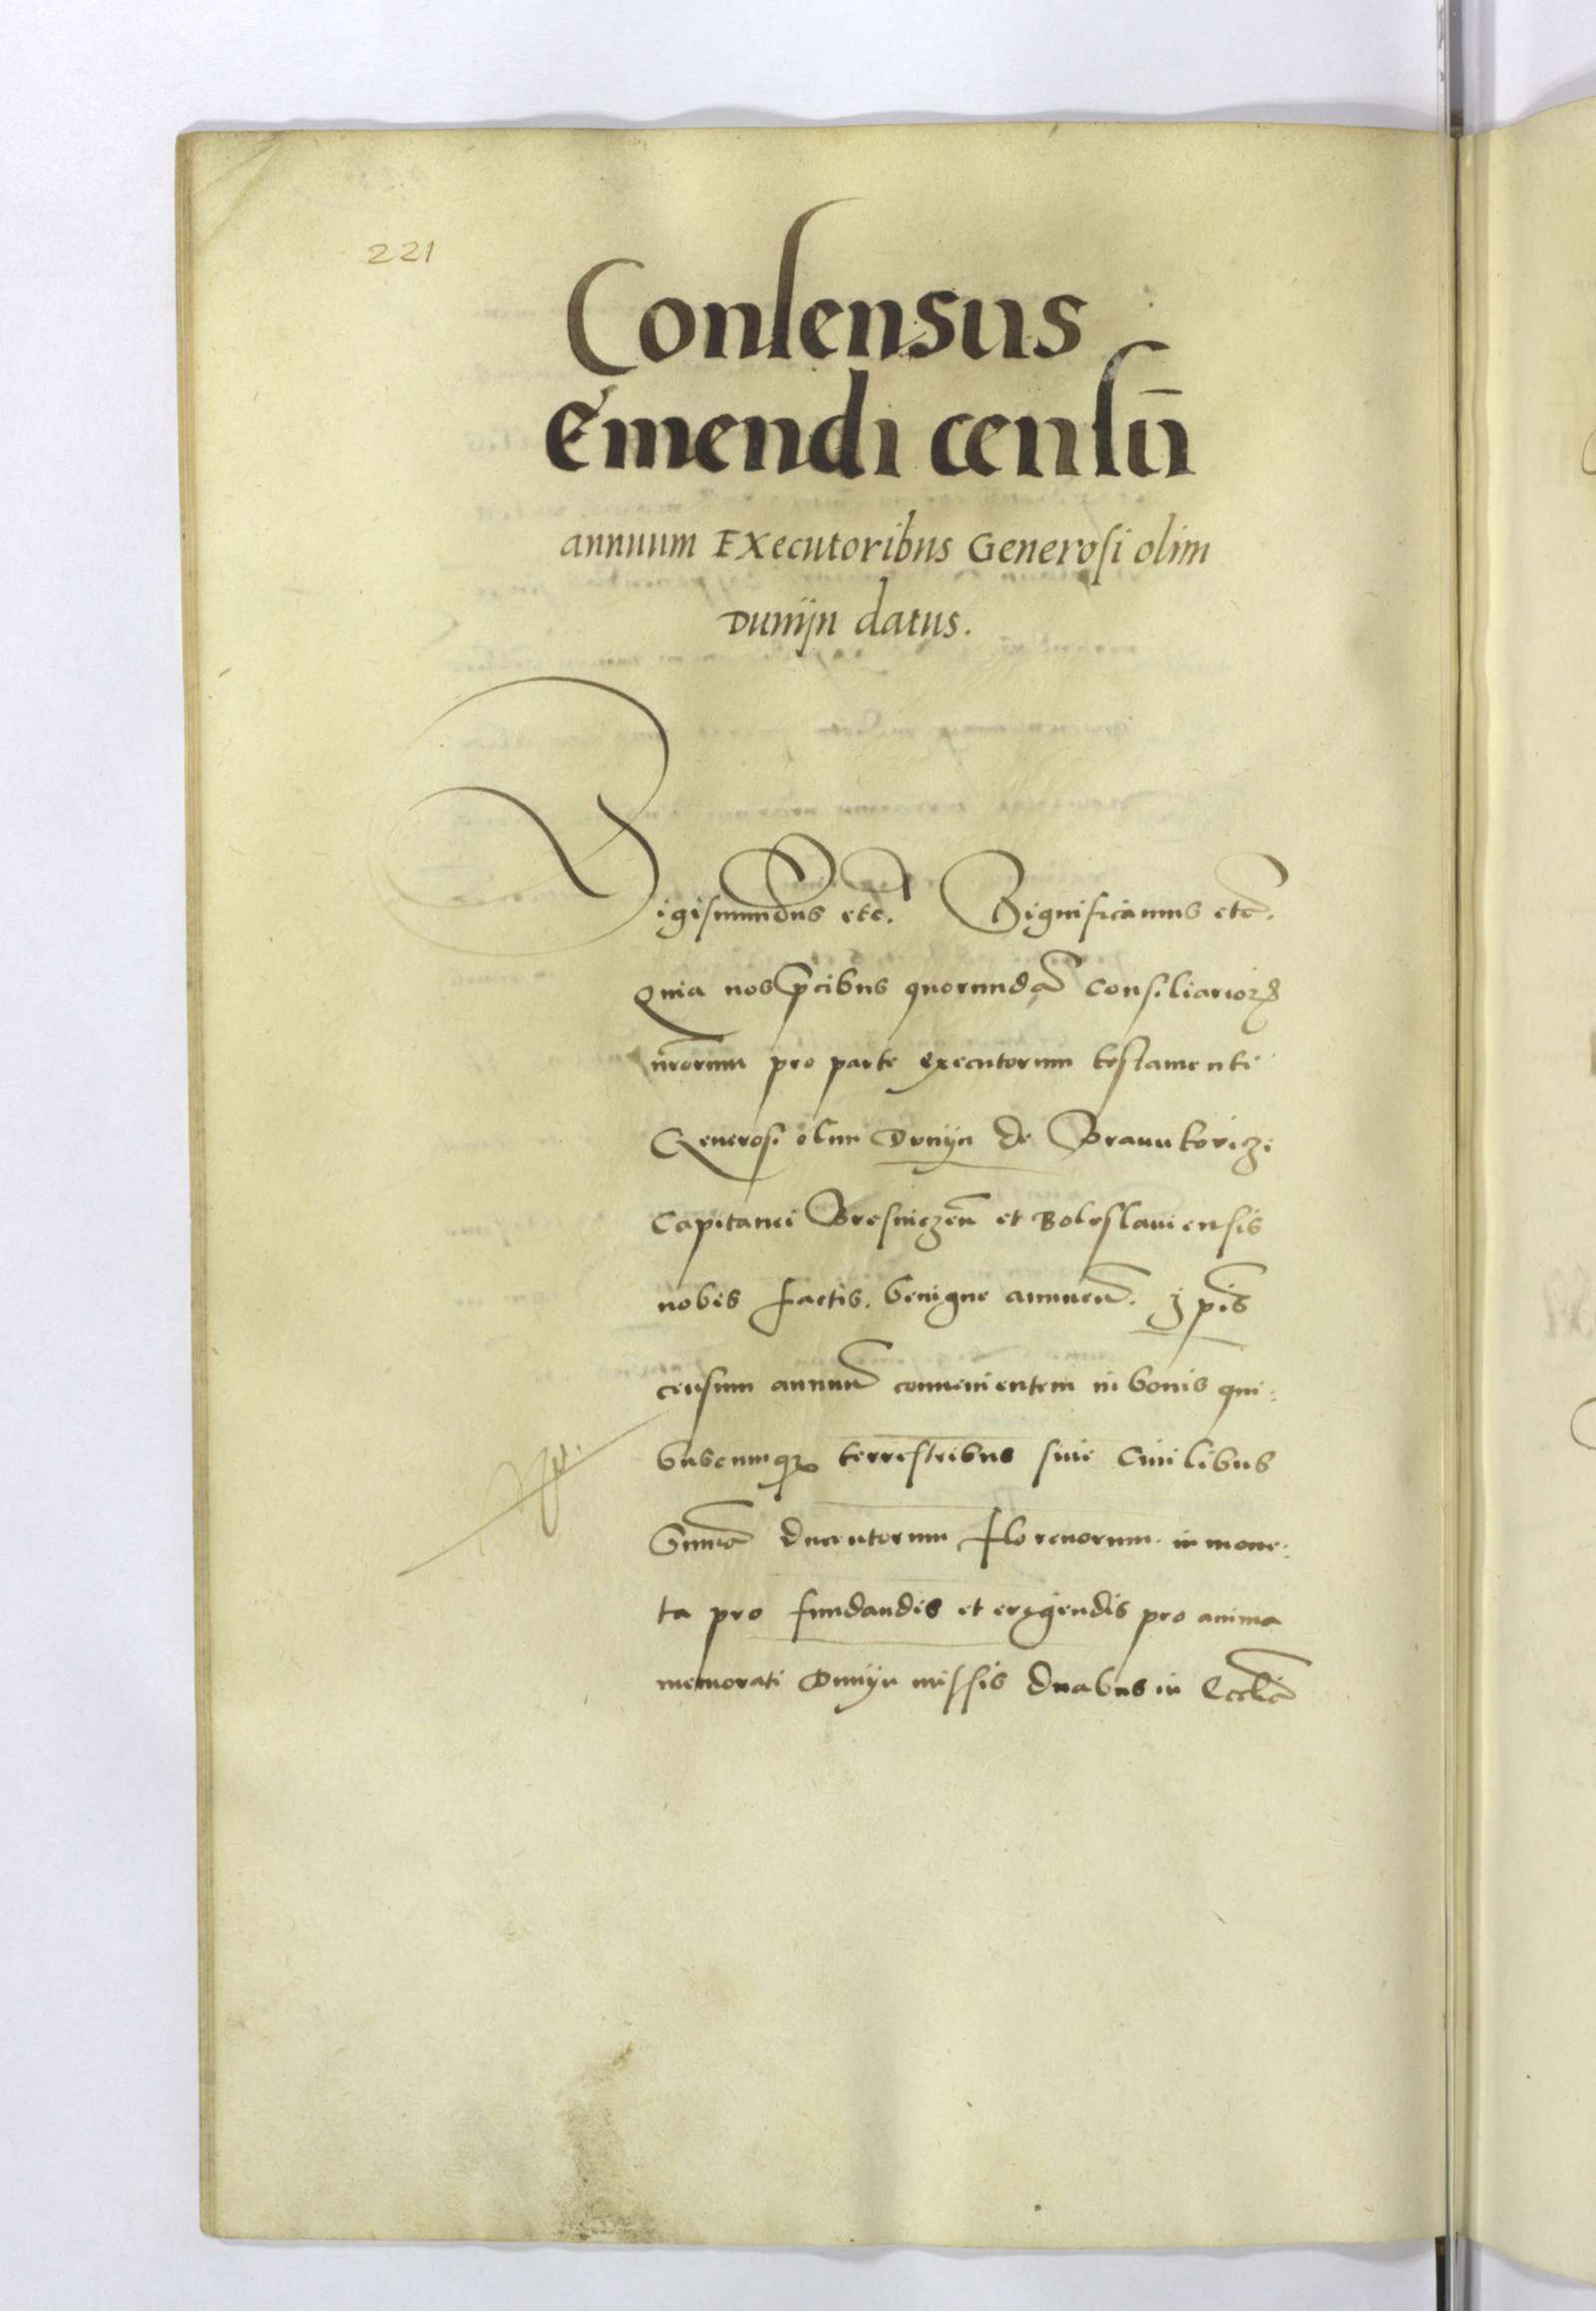 221
Consensus
Emendi censū
annuum Executoribus Generosi olim
Dunijn datus.
Sigismundus etc. Significamus etc.
Quia nos p̄cibus quorundā Consiliarioꝝ
nr̄orum pro parte executorum testamenti
Generosi olim Dunijn de Srauukorizi
Capitanei Bresniczeñ et Boleslauiensis
nobis factis. benigne annueñ. ip̄is
censum annuū conuenientem in bonis qui:
buscumqꝫ terrestribus siue Ciuilibus
Sum̄a ducentorum florenorum in mone:
ta pro fundandis et erigendis pro anima
memorati Dunijn missis duabus in Eccl̄ia